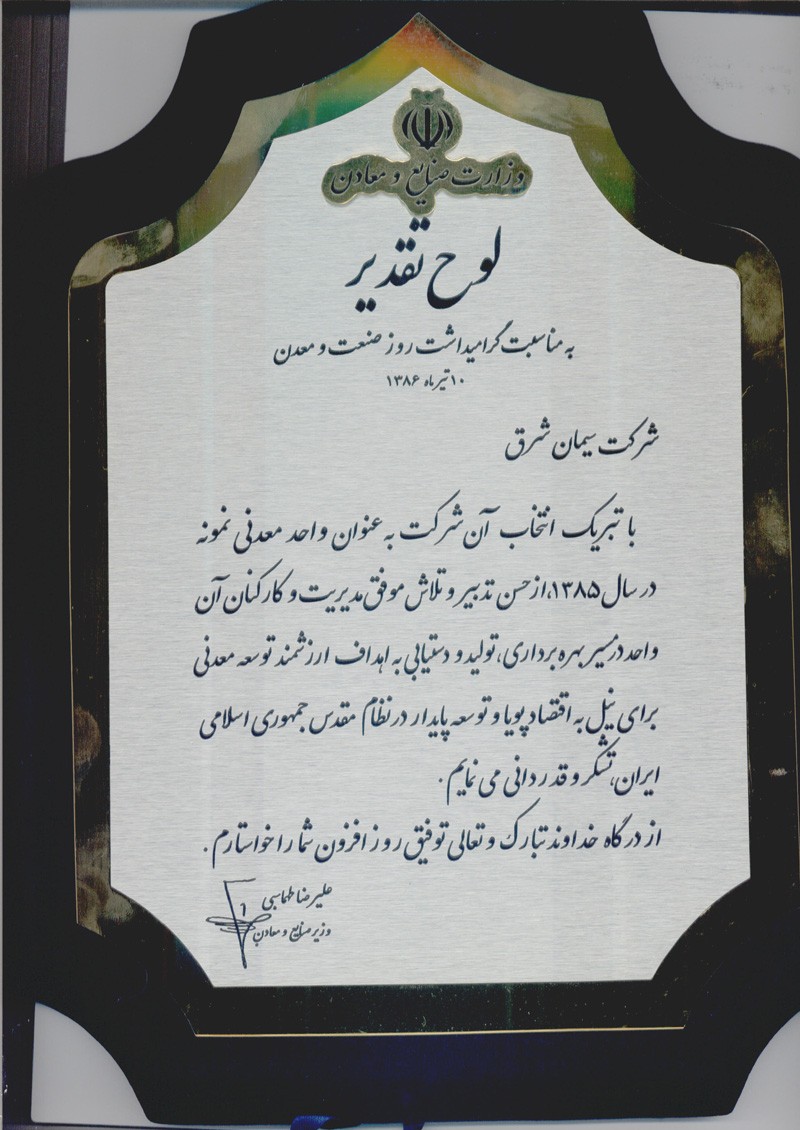 وزارت صنایع و معادن
لوح تقدیر
به مناسبت گرامیداشت روز صنعت و معدن
۱۰ تیر ماه ۱۳۸۶
شرکت سیمان شرق
با تبریک انتخاب آن شرکت به عنوان واحد معدنی نمونه
در سال ۱۳۸۵، از حسن تدبیر و تلاش موفق مدیریت و کارکنان آن
واحد در مسیر بهره برداری، تولید و دستیابی به اهداف ارزشمند توسعه معدنی
برای نیل به اقتصاد پویا و توسعه پایدار در نظام مقدس جمهوری اسلامی
ایران، تشکر و قدردانی می نمایم.
از درگاه خداوند تبارک و تعالی توفیق روز افزون شما را خواستارم.
علیرضا طهماسبی
وزیر صنایع و معادن